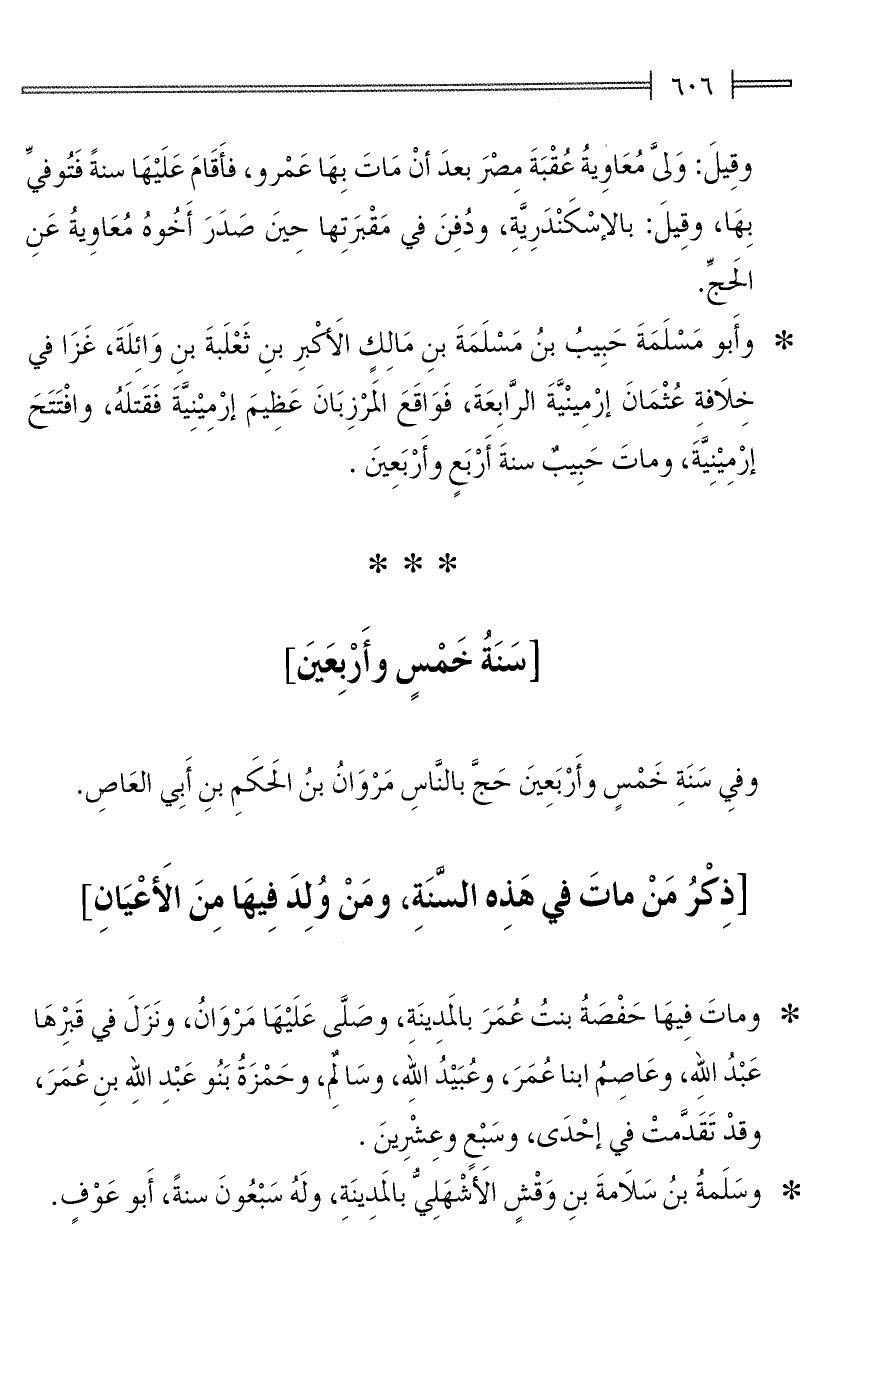 ٦٠٦
وقِيلَ: وَلىَّ مُعَاوِيةُ عُقْبَةَ مِصْرَ بعدَ أنْ مَاتَ بِهَا عَمْرو، فأَقَامَ عَلَيْهَا سنةً فَتُوفيِّ
بِهَا، وقِيلَ: بالإسْكَنْدَرِيَّةِ، ودُفِنَ في مَقْبَرَتِها حِينَ صَدَرَ أَخُوهُ مُعَاوِيةُ عَنِ
الحَجِّ.
* وأَبو مَسْلَمَةَ حَبِيبُ بنُ مَسْلَمَةَ بنِ مَالِكٍ الأَكْبرِ بنِ ثَعْلَبةَ بنِ وَائِلَةَ، غَزَا في
خِلَافةِ عُثْمَانَ إرْمِينْيَّةَ الرَّابِعَةَ، فَوَاقَعَ المَرْزِبَانَ عَظِيمَ إرْمِيْنِيَّةَ فَقَتلَهُ، وافْتَتَحَ
إرْمِيْنِيَّةَ، وماتَ حَبِيبٌ سنةَ أَرْبَعٍ وأَرْبَعِينَ .
* * *
[سَنَةُ خَمْسٍ وأَرْبِعَينَ]
وفِي سَنَةِ خَمْسٍ وأَرْبَعِينَ حَجَّ بالنَّاسِ مَرْوَانُ بنُ الحَكَمِ بنِ أَبِي العَاصِ.
[ذِكْرُ مَنْ ماتَ في هَذِه السَّنَةِ، ومَنْ وُلِدَ فِيهَا مِنَ الأَعْيَانِ]
* وماتَ فِيهَا حَفْصَةُ بنتُ عُمَرَ بالمَدِينَةِ، وصَلَّى عَلَيْهَا مَرْوَانُ، ونَزَلَ في قَبْرْهَا
عَبْدُ اللهِ، وعَاصِمُ ابنا عُمَرَ، وعُبَيْدُ اللهِ، وسَالمٌ، وحَمْزَةُ بَنُو عَبْدِ اللهِ بنِ عُمَرَ،
وقدْ تَقَدَّمتْ في إحْدَى، وسَبْعٍ وعِشْرِينَ .
* وسَلَمةُ بنُ سَلَامةَ بنِ وَقْشٍ الأَشْهَلِيُّ بالمَدِينَةِ، ولَهُ سَبْعُونَ سنةً، أَبو عَوْفٍ.